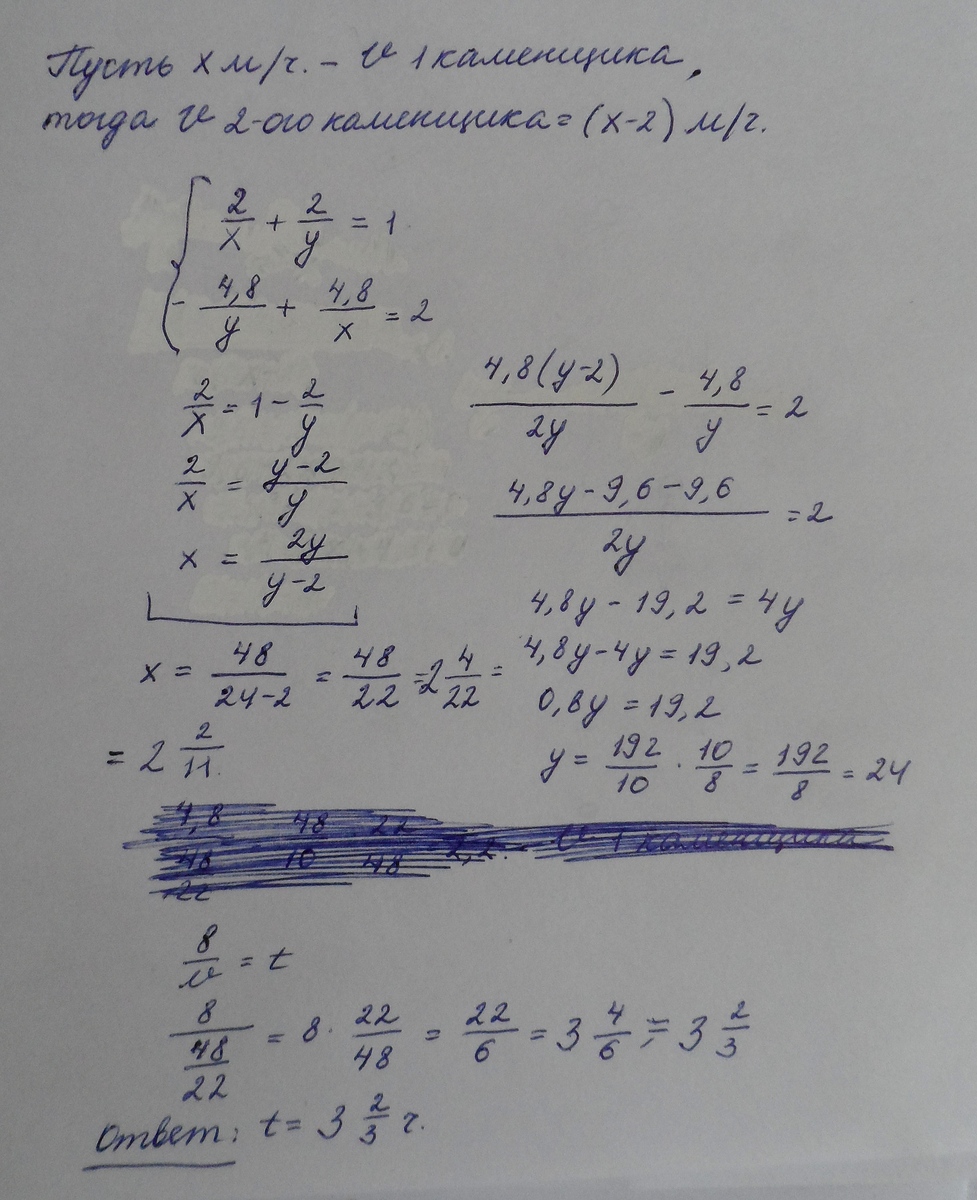 Пусть x м/ч. – v 1 каменщика,
тогда v 2-ого каменщика = (x-2) м/ч.
2/x + 2/y = 1
- 4,8/y + 4,8/x = 2
2/x = 1 - 2/y
2/x = (y-2)/y
x = 2y/(y-2)
4,8(y-2)/2y - 4,8/y = 2
(4,8y - 9,6 - 9,6)/2y = 2
4,8y - 19,2 = 4y
4,8y - 4y = 19,2
0,8y = 19,2
y = 192/10 · 10/8 = 192/8 = 24
x = 48/(24-2) = 48/22 = 2 4/22 =
= 2 2/11.
4,8 48 22
48 10 48 v 1 каменщика
22
8/v = t
8/(48/22) = 8 · 22/48 = 22/6 = 3 4/6 = 3 2/3
Ответ: t = 3 2/3 ч.